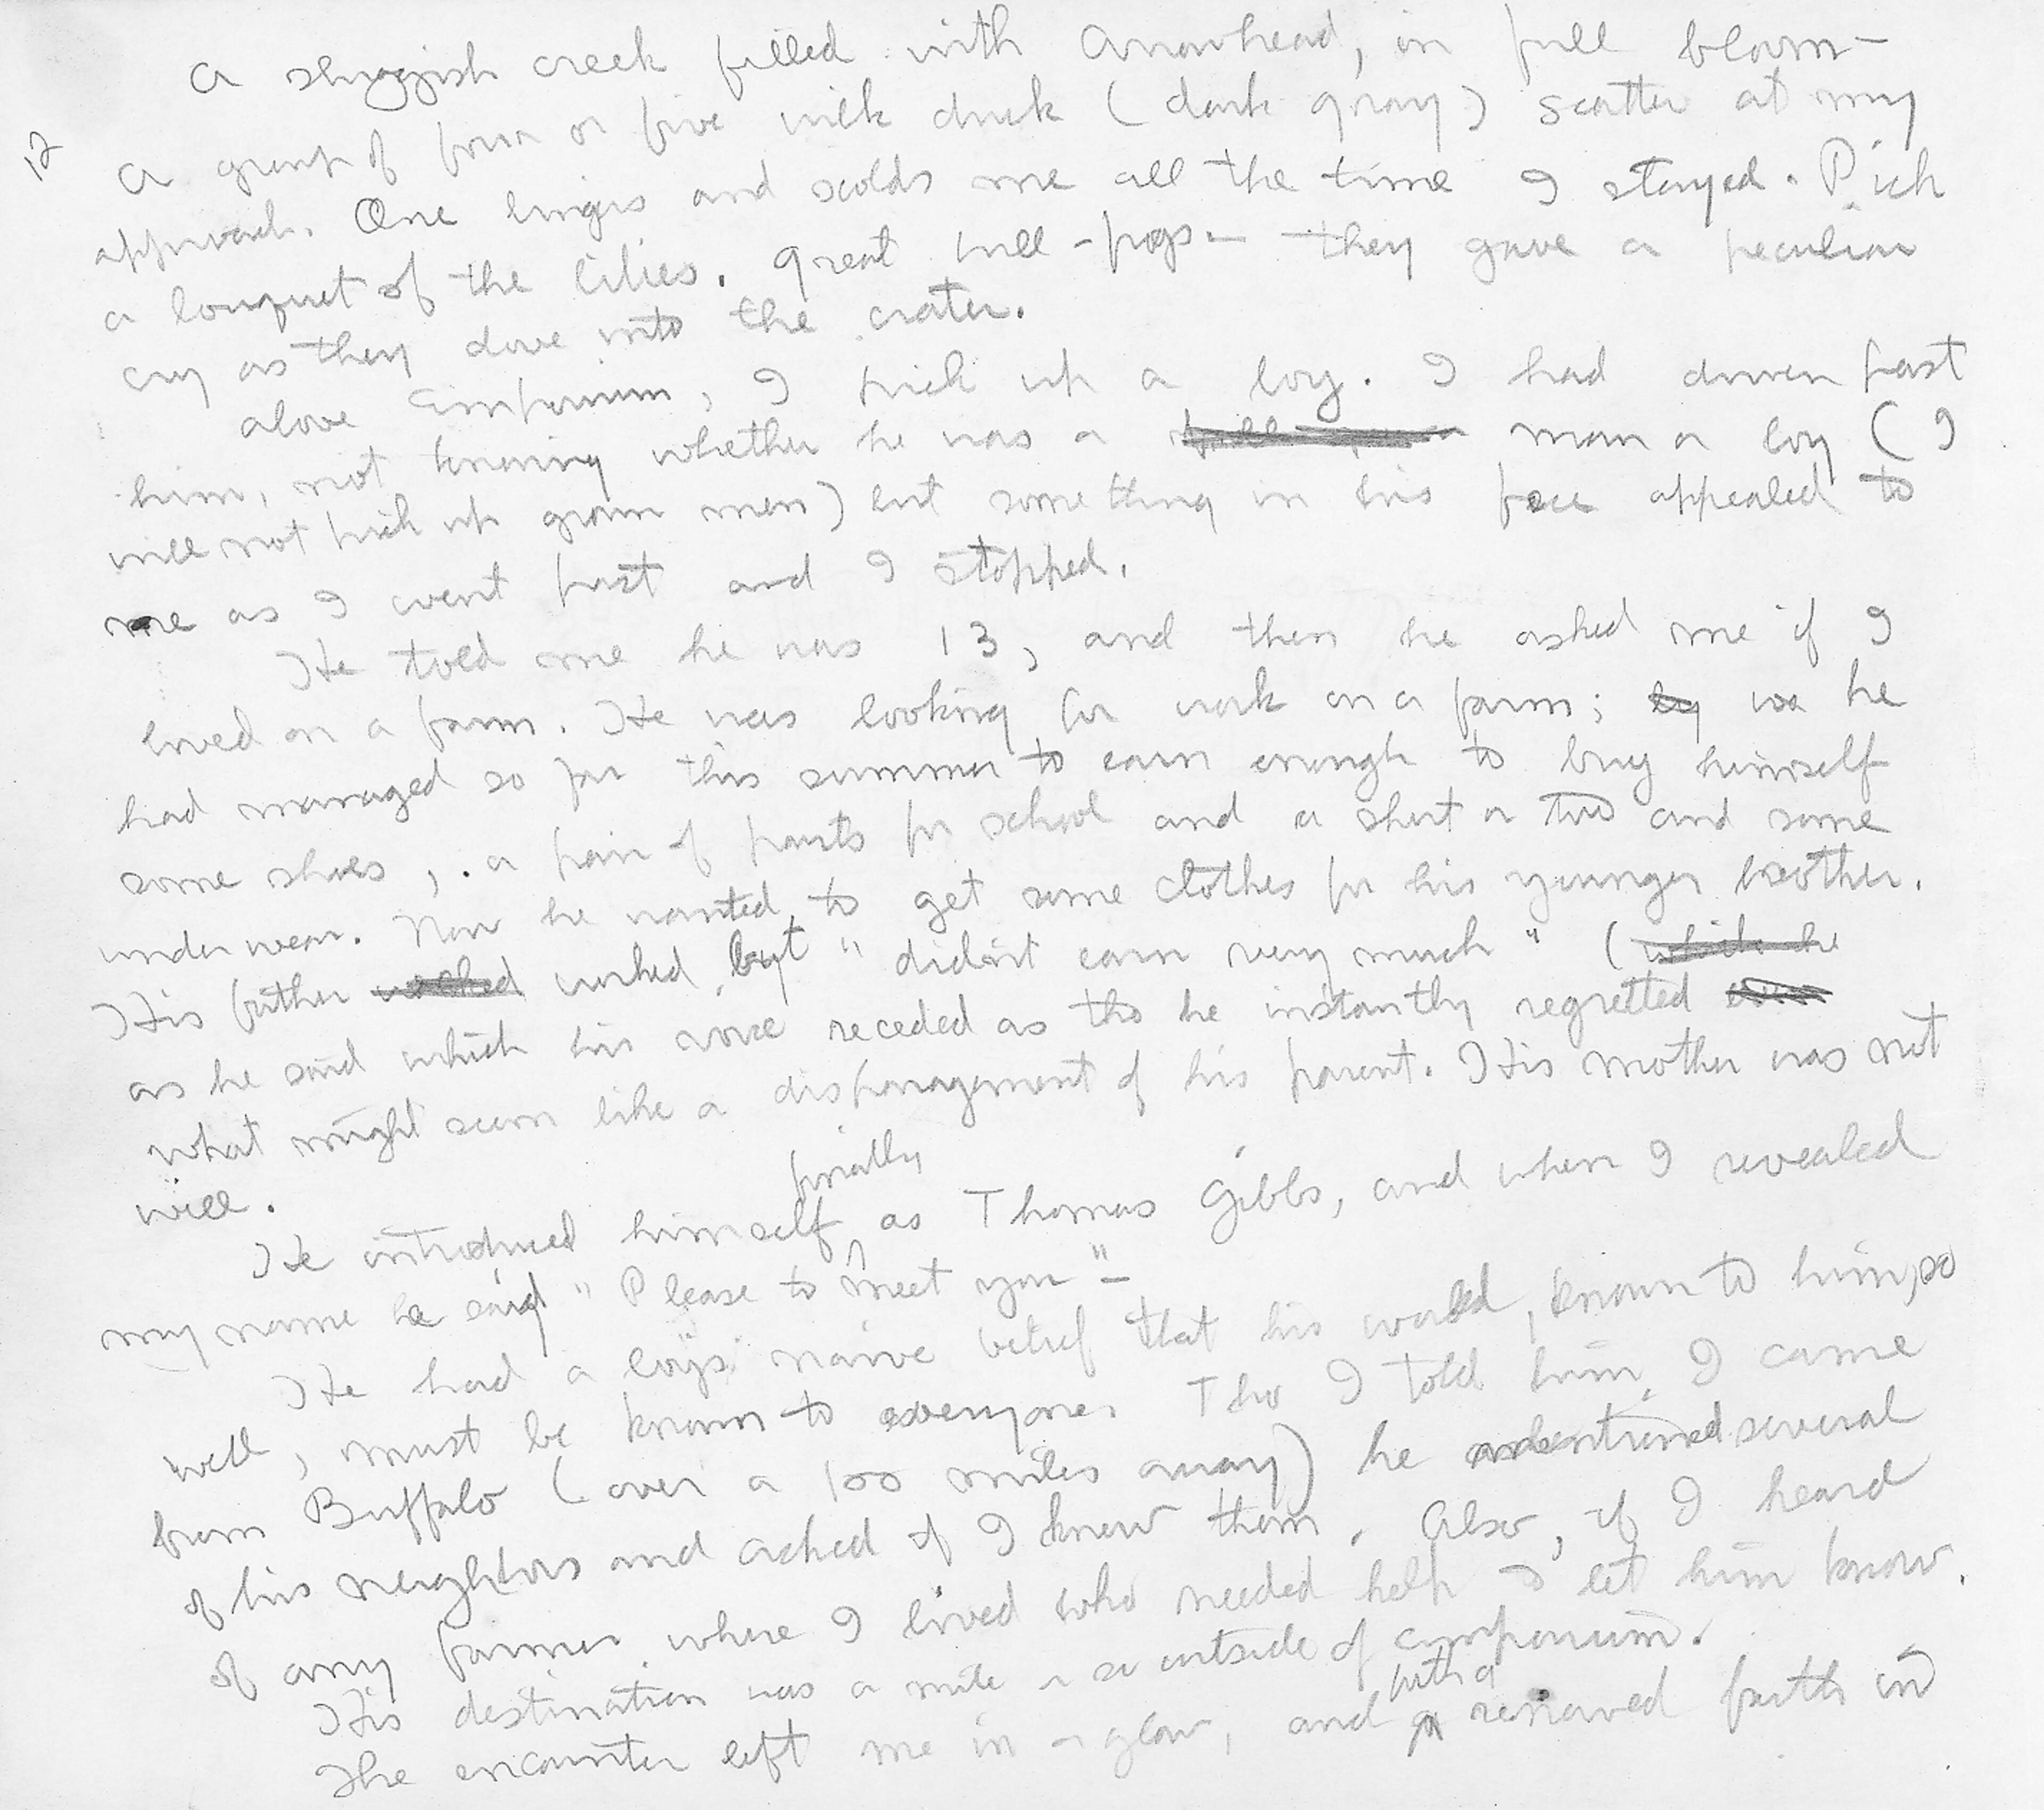 A sluggish creek filled with Arrowhead, in full bloom—
12
A group of four or five milk duck (dark gray) scatter at my
approach. One lingers and scolds me all the time I stayed. Pick
a bouquet of the lilies. Great bull-frogs— they gave a peculiar
cry as they dove into the water.
above Emporium, I pick up a boy. I had driven past
him, not knowing whether he was a man or boy (I
will not pick up grown men) but something in his face appealed to
me as I went past and I stopped.
He told me he was 13, and then he asked me if I
lived on a farm. He was looking for work on a farm; he
had managed so far this summer to earn enough to buy himself
some shoes, a pair of pants for school and a shirt or two and some
underwear. Now he wanted to get some clothes for his younger brother.
His father worked, but "didn't earn very much" (
as he said which his voice receded as tho he instantly regretted
what might seem like a disparagement of his parent. His mother was not
well.
finally
He introduced himself as Thomas Gibbs, and when I revealed
my name he said "Please to meet you"—
He had a boys naive belief that his world, known to him so
well, must be known to everyone. Tho I told him I came
from Buffalo (over a 100 miles away) he mentioned several
of his neighbors and asked if I knew them. Also, if I heard
of any farmer where I lived who needed help to let him know.
His destination was a mile or so outside of Emporium.
with a
The encounter left me in a glow, and renewed faith in